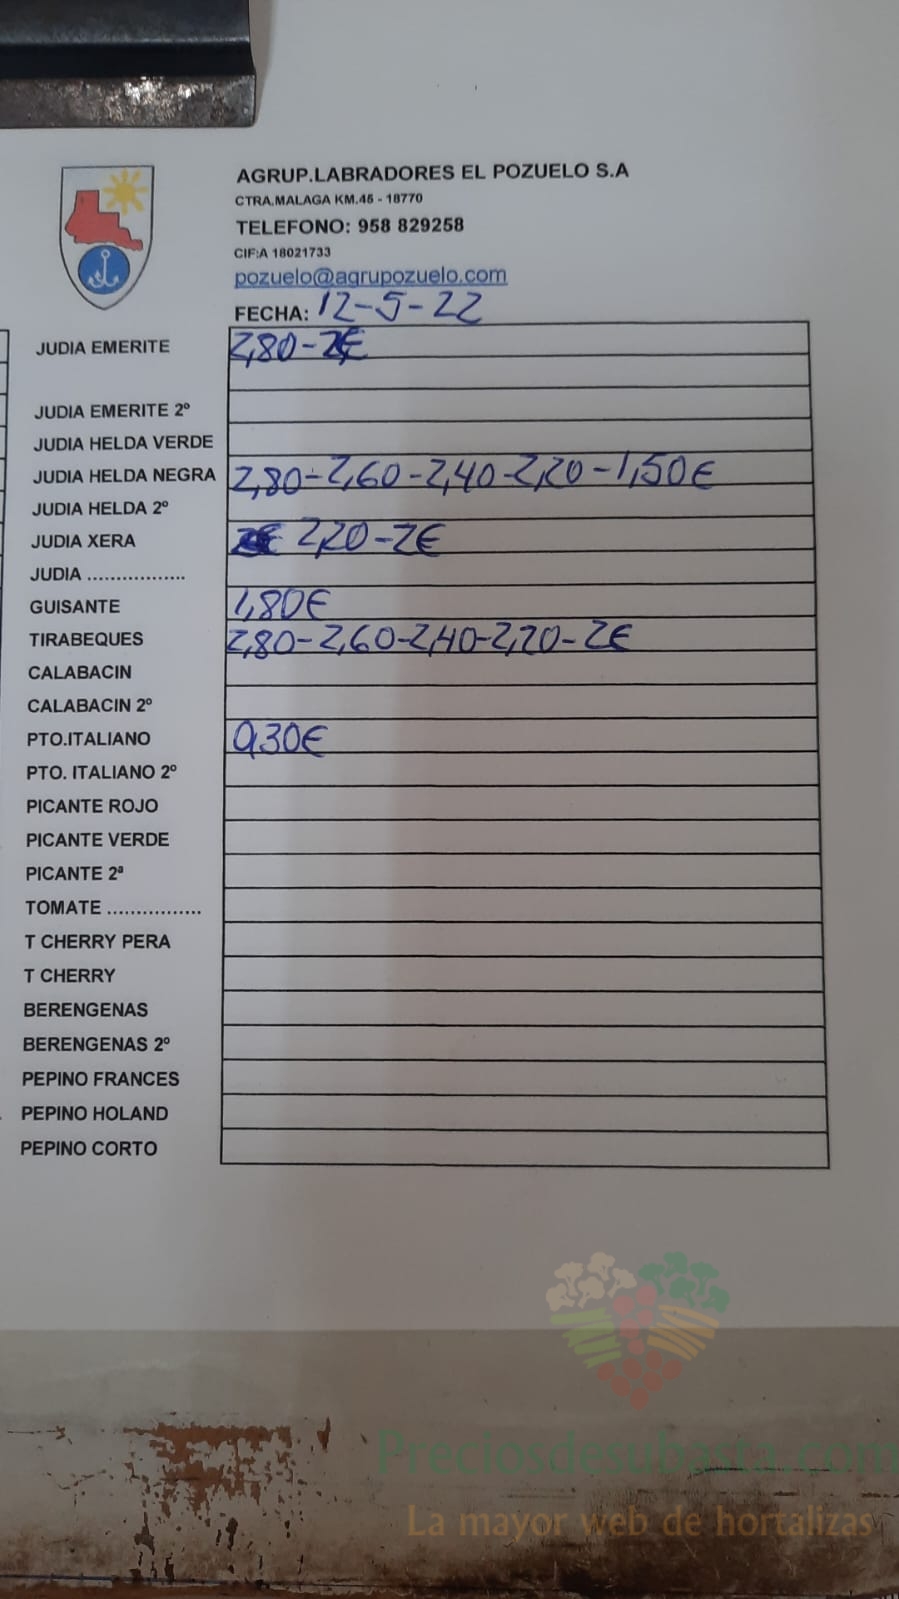 AGRUP.LABRADORES EL POZUELO S.A
CTRA.MALAGA KM.45 - 18770
TELEFONO: 958 829258
CIF:A 18021733
pozuelo@agrupozuelo.com
FECHA: 12-5-22
JUDIA EMERITE 2,80-2€
JUDIA EMERITE 2º
JUDIA HELDA VERDE
JUDIA HELDA NEGRA 2,80-2,60-2,40-2,20-1,50€
JUDIA HELDA 2º
JUDIA XERA 2,20-2€
JUDIA .................
GUISANTE 1,80€
TIRABEQUES 2,80-2,60-2,40-2,20-2€
CALABACIN
CALABACIN 2º
PTO.ITALIANO 0,30€
PTO. ITALIANO 2º
PICANTE ROJO
PICANTE VERDE
PICANTE 2ª
TOMATE ................
T CHERRY PERA
T CHERRY
BERENGENAS
BERENGENAS 2º
PEPINO FRANCES
PEPINO HOLAND
PEPINO CORTO
Preciosdesubasta.com
La mayor web de hortalizas